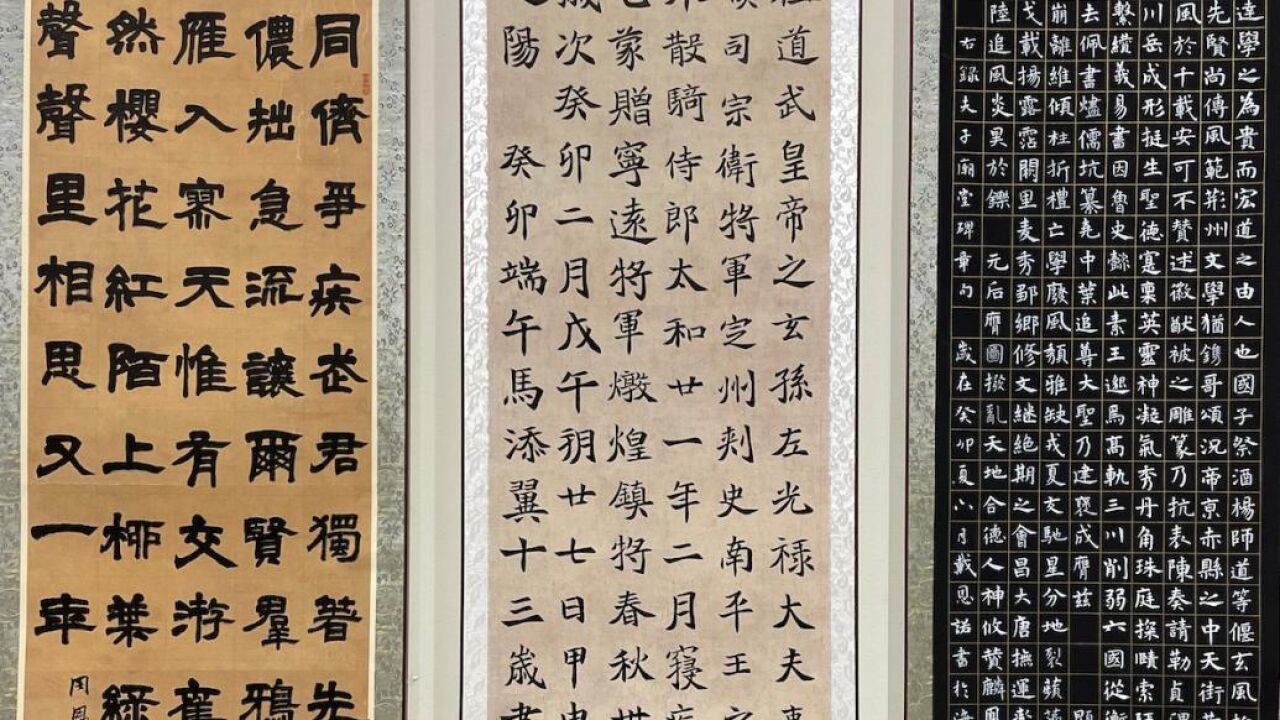 達學之為貴而宏道之由人也國子祭酒楊師道等偃玄風
先賢尚傳風範荊州文學猶鎸哥頌況帝京赤縣之中天街
風於千載安可不贊述徽猷被之雕篆乃抗表陳奏請勒貞
川岳成形挺生聖德寔稟英靈神凝氣秀月角珠庭探賾索
繫纘羲易書因魯史懿此素王邈焉高軌三川削弱六國從衡
去佩書燼儒坑纂堯中葉追尊大聖乃建褒成膺茲 顯
崩離維傾柱折禮亡學廢風頹雅缺戎夏交馳星分地裂蘋
戈載揚露霑闕里麥秀鄒鄉修文繼絕期之會昌大唐撫運
陸追風炎昊於鑠 元后膺圖撥亂天地合德人神攸贊麟
右錄夫子廟堂碑章句 歲在癸卯夏六月載恩諾書於海
道武皇帝之玄孫左光祿大夫
司宗衛將軍定州刺史南平王之
散騎侍郎太和廿一年二月寑疾
蒙贈寧遠將軍燉煌鎮將春秋
歲次癸卯二月戊午朔廿七日甲申
陽 癸卯端午馬添翼十三歲書
同儕爭疾走君獨著先
儂拙急流讓爾賢羣鴉
雁入寥天惟有交游舊
然櫻花紅陌上柳葉綠
聲聲里相思又一年
周